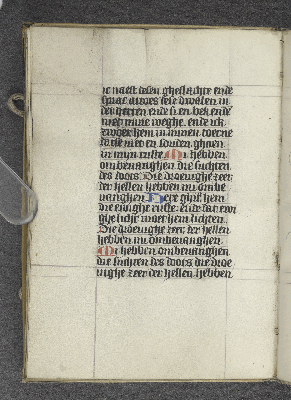 ic naest desen gheslachte ende
sprac altoes sese dwalen in
der herten ende si en bekende
niet mine weghe. ende ick
zwoer hem in minen toerne
dat si niet en souden ghaen
in mijn ruste. Mi hebben
ombevanghen die suchten
des doots Die droeuighe zeer
der hellen hebben mi ombe
vanghen. Here ghif hem
die ewighe ruste. ende dat ewi
ghe licht moet hem lichten.
Die droeuighe zeer der hellen
hebben mi ombevanghen.
Mi hebben ombevanghen
die suchten des doots die droe
uighe zeer der hellen hebben